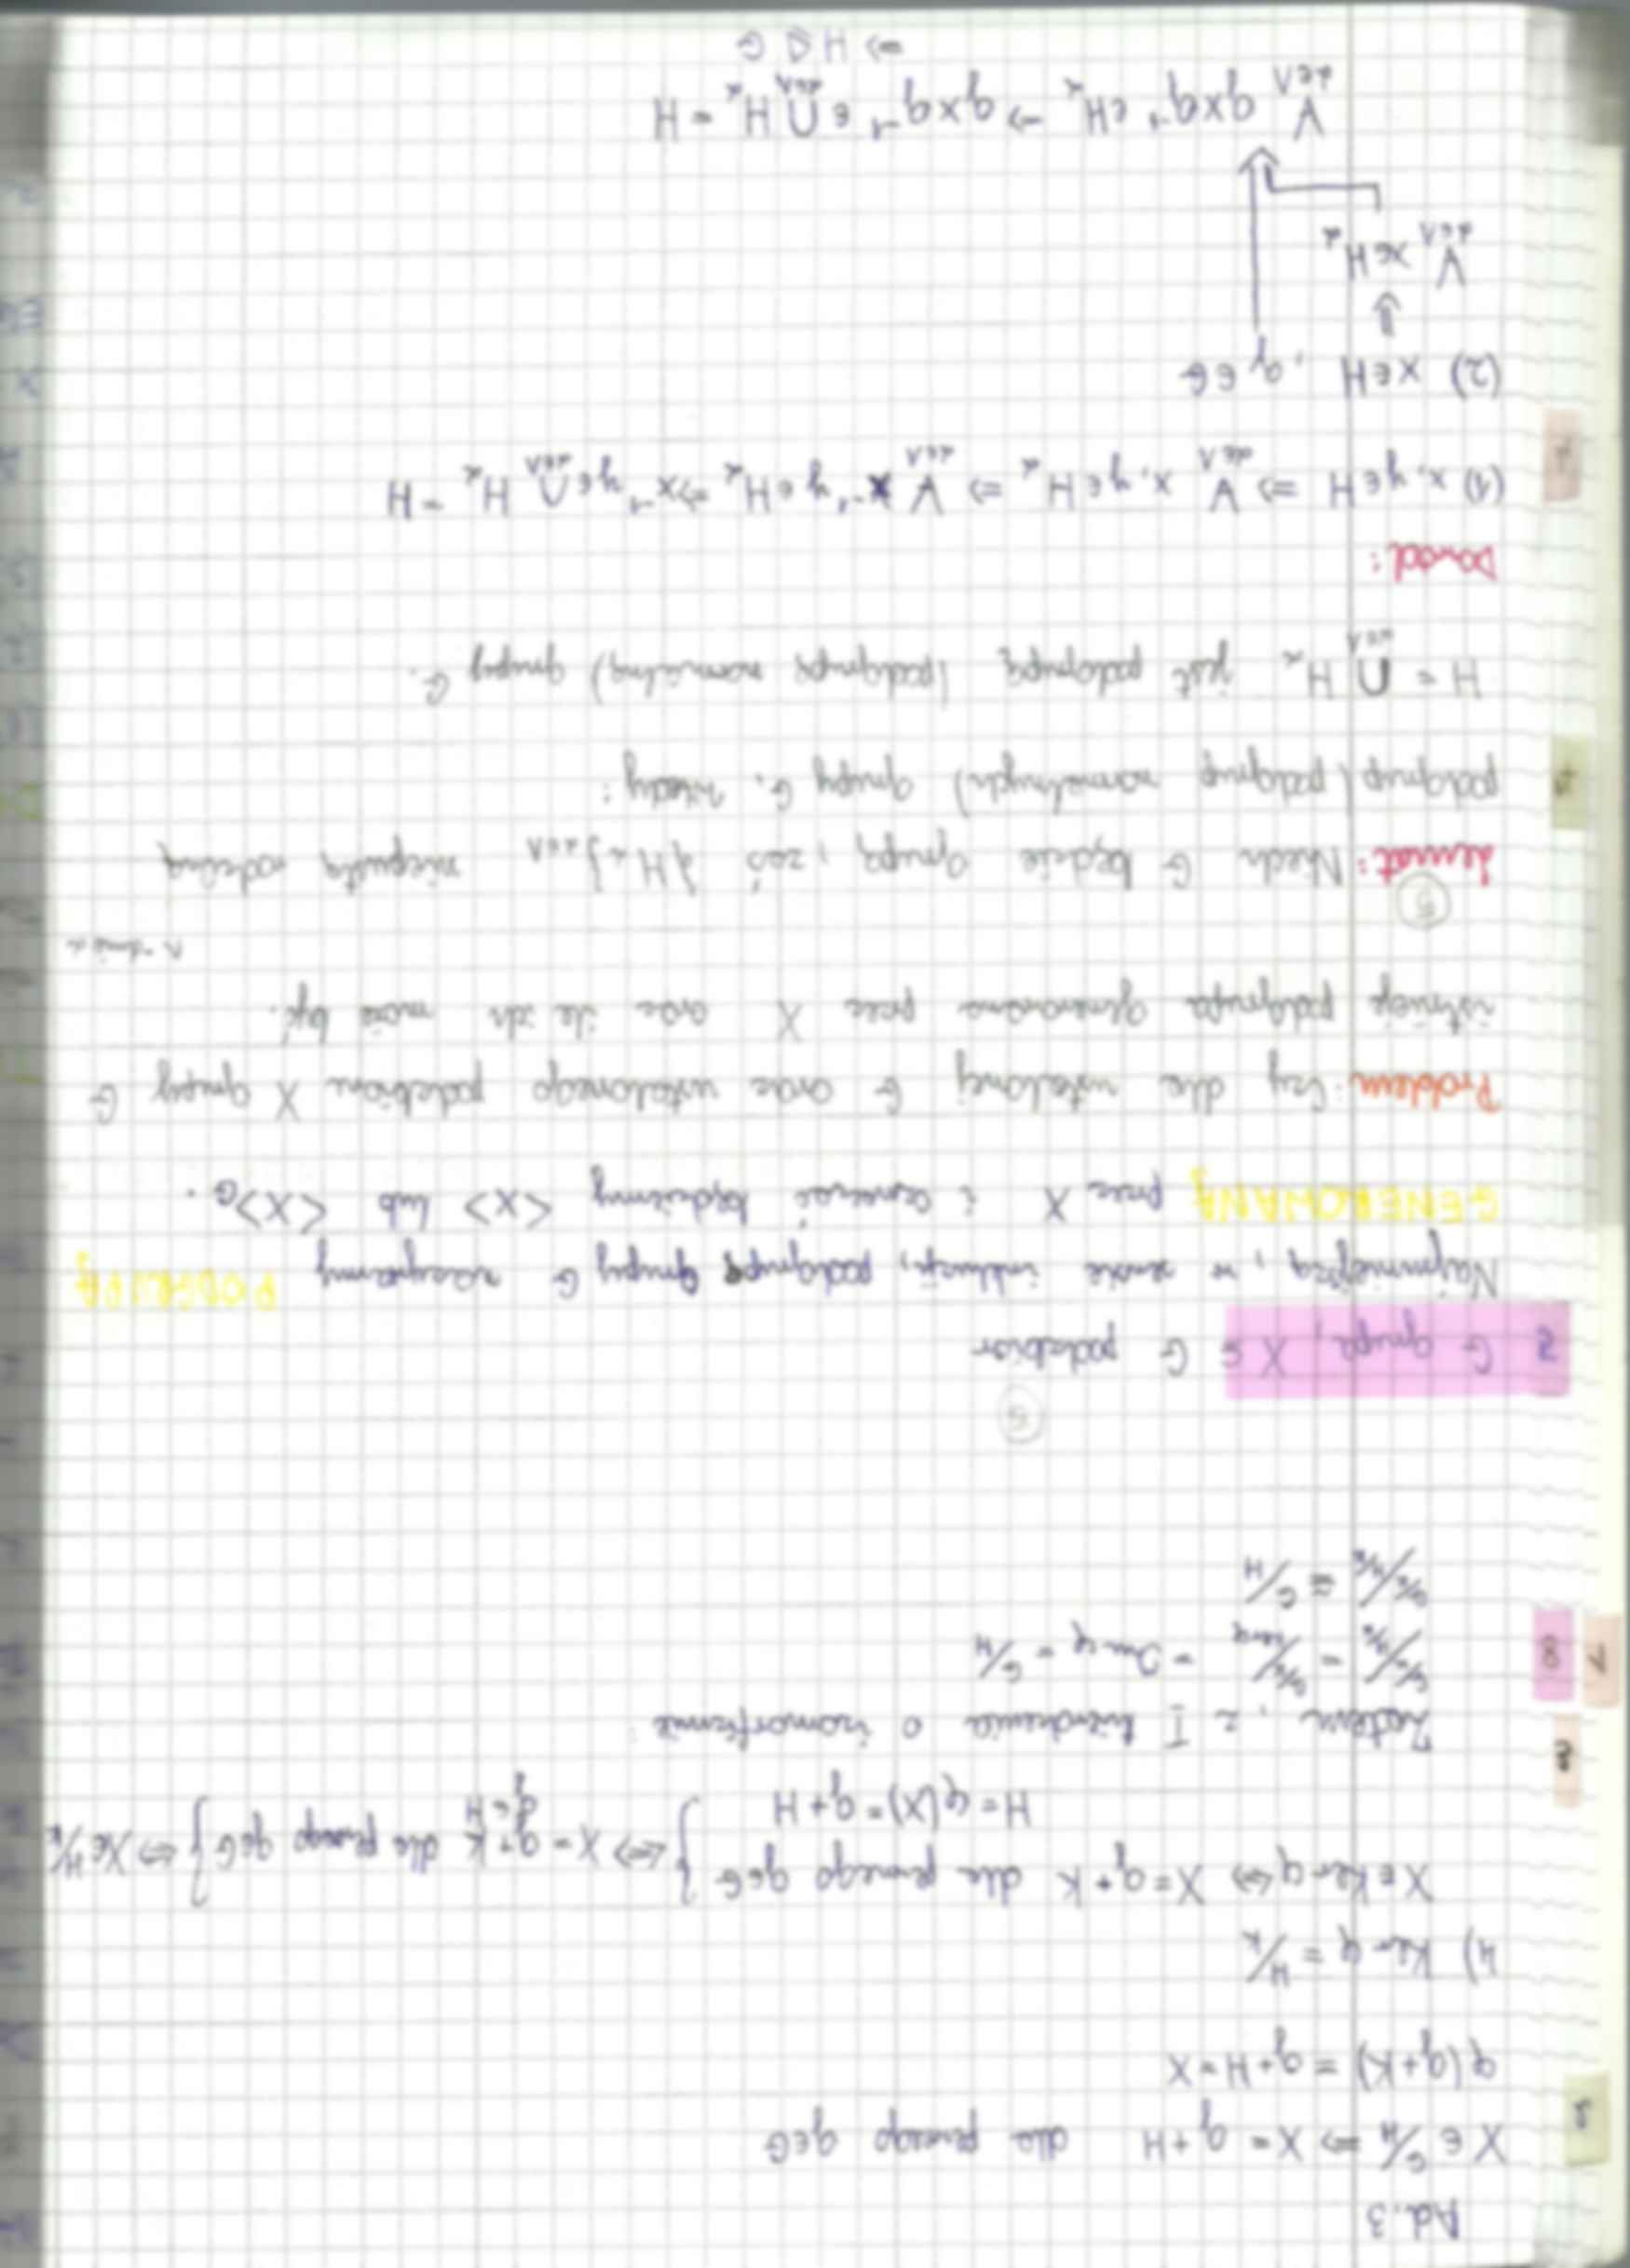 Ad. 3
X ∈ G/H ⇒ X = g+H dla pewnego g∈G
φ(g+K) = g+H = X
4) Ker φ = H/K
X ∈ Ker φ ⇔ X = g+K dla pewnego g∈G } ⇔ X = g+K dla pewnego g∈G } ⇔ X∈H/K
H = φ(X) = g+H g∈H
Zatem, z I twierdzenia o izomorfizmie:
G/K/H/K = G/K/Ker φ = Im φ = G/H
G/K/H/K ≅ G/H
5
G grupa, X ⊆ G podzbiór
Najmniejszą, w sensie inkluzji, podgrupę grupy G nazywamy PODGRUPĄ
GENEROWANĄ przez X i oznaczać będziemy <X> lub <X>G.
Problem: Czy dla ustalonej G oraz ustalonego podzbioru X grupy G
istnieje podgrupa generowana przez X oraz ile ich może być.
5
Lemat: Niech G będzie grupą, zaś {Hα}α∈Λ niepustą rodziną
podgrup (podgrup normalnych) grupy G. Wtedy:
H = ⋂ Hα jest podgrupą (podgrupą normalną) grupy G.
α∈Λ
Dowód:
(1) x, y ∈ H ⇒ ∀ x, y ∈ Hα ⇒ ∀ x⁻¹y ∈ Hα ⇒ x⁻¹y ∈ ⋂ Hα = H
α∈Λ α∈Λ α∈Λ
(2) x∈H , g∈G
⇓
∀ x∈Hα
α∈Λ
∀ gxg⁻¹ ∈ Hα ⇒ gxg⁻¹ ∈ ⋂ Hα = H
α∈Λ α∈Λ
⇒ H ⊴ G